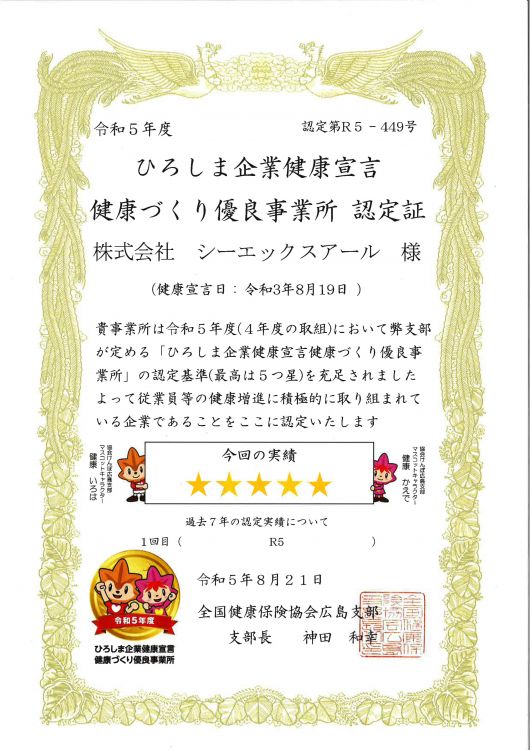 令和５年度
認定第R５－449号
ひろしま企業健康宣言
健康づくり優良事業所 認定証
株式会社 シーエックスアール 様
(健康宣言日：令和3年8月19日 )
貴事業所は令和５年度(４年度の取組)において弊支部
が定める「ひろしま企業健康宣言健康づくり優良事
業所」の認定基準(最高は５つ星)を充足されました
よって従業員等の健康増進に積極的に取り組まれて
いる企業であることをここに認定いたします
協会けんぽ広島支部
マスコットキャラクター
健康 いろは
今回の実績
★★★★★
協会けんぽ広島支部
マスコットキャラクター
健康 かえで
過去７年の認定実績について
1回目 ( R5 )
令和５年８月２１日
全国健康保険協会広島支部
支部長 神田 和幸
令和5年度
ひろしま企業健康宣言
健康づくり優良事業所